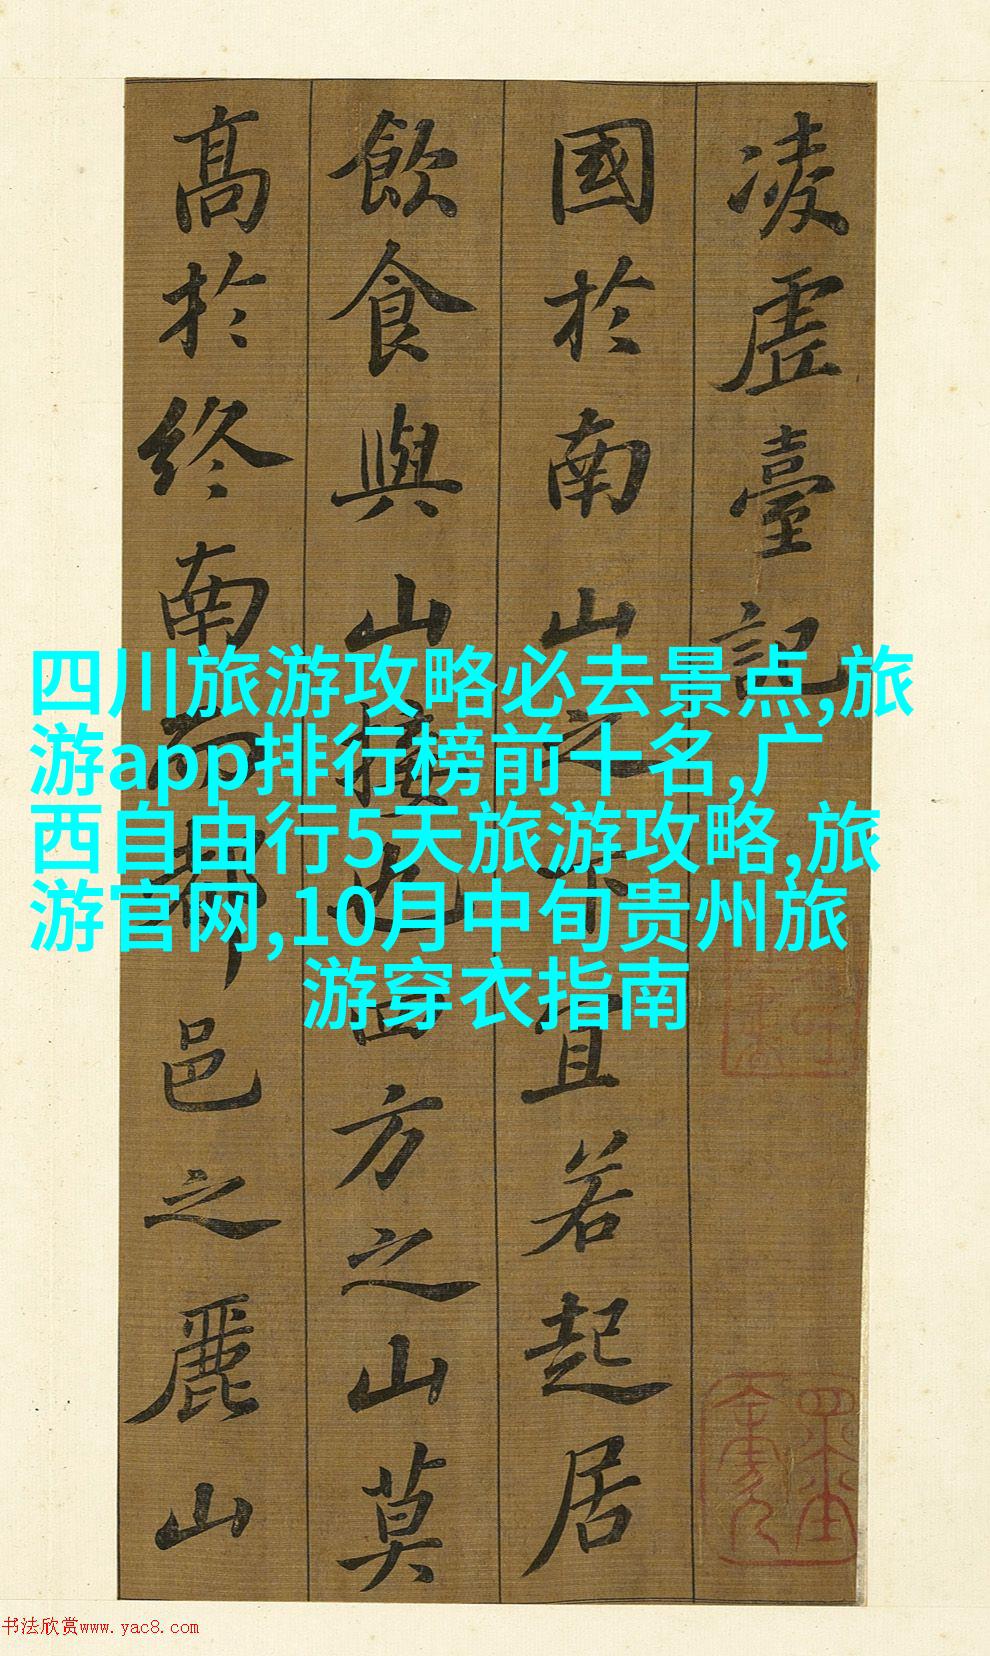 凌虛臺記
國於南山之下宜若起居
飲食與山接也四方之山莫
高於終南而都邑之麗山
四川旅游攻略必去景点,旅
游app排行榜前十名,广
西自由行5天旅游攻略,旅
游官网,10月中旬贵州旅
游穿衣指南
书法欣赏www.yac8.com